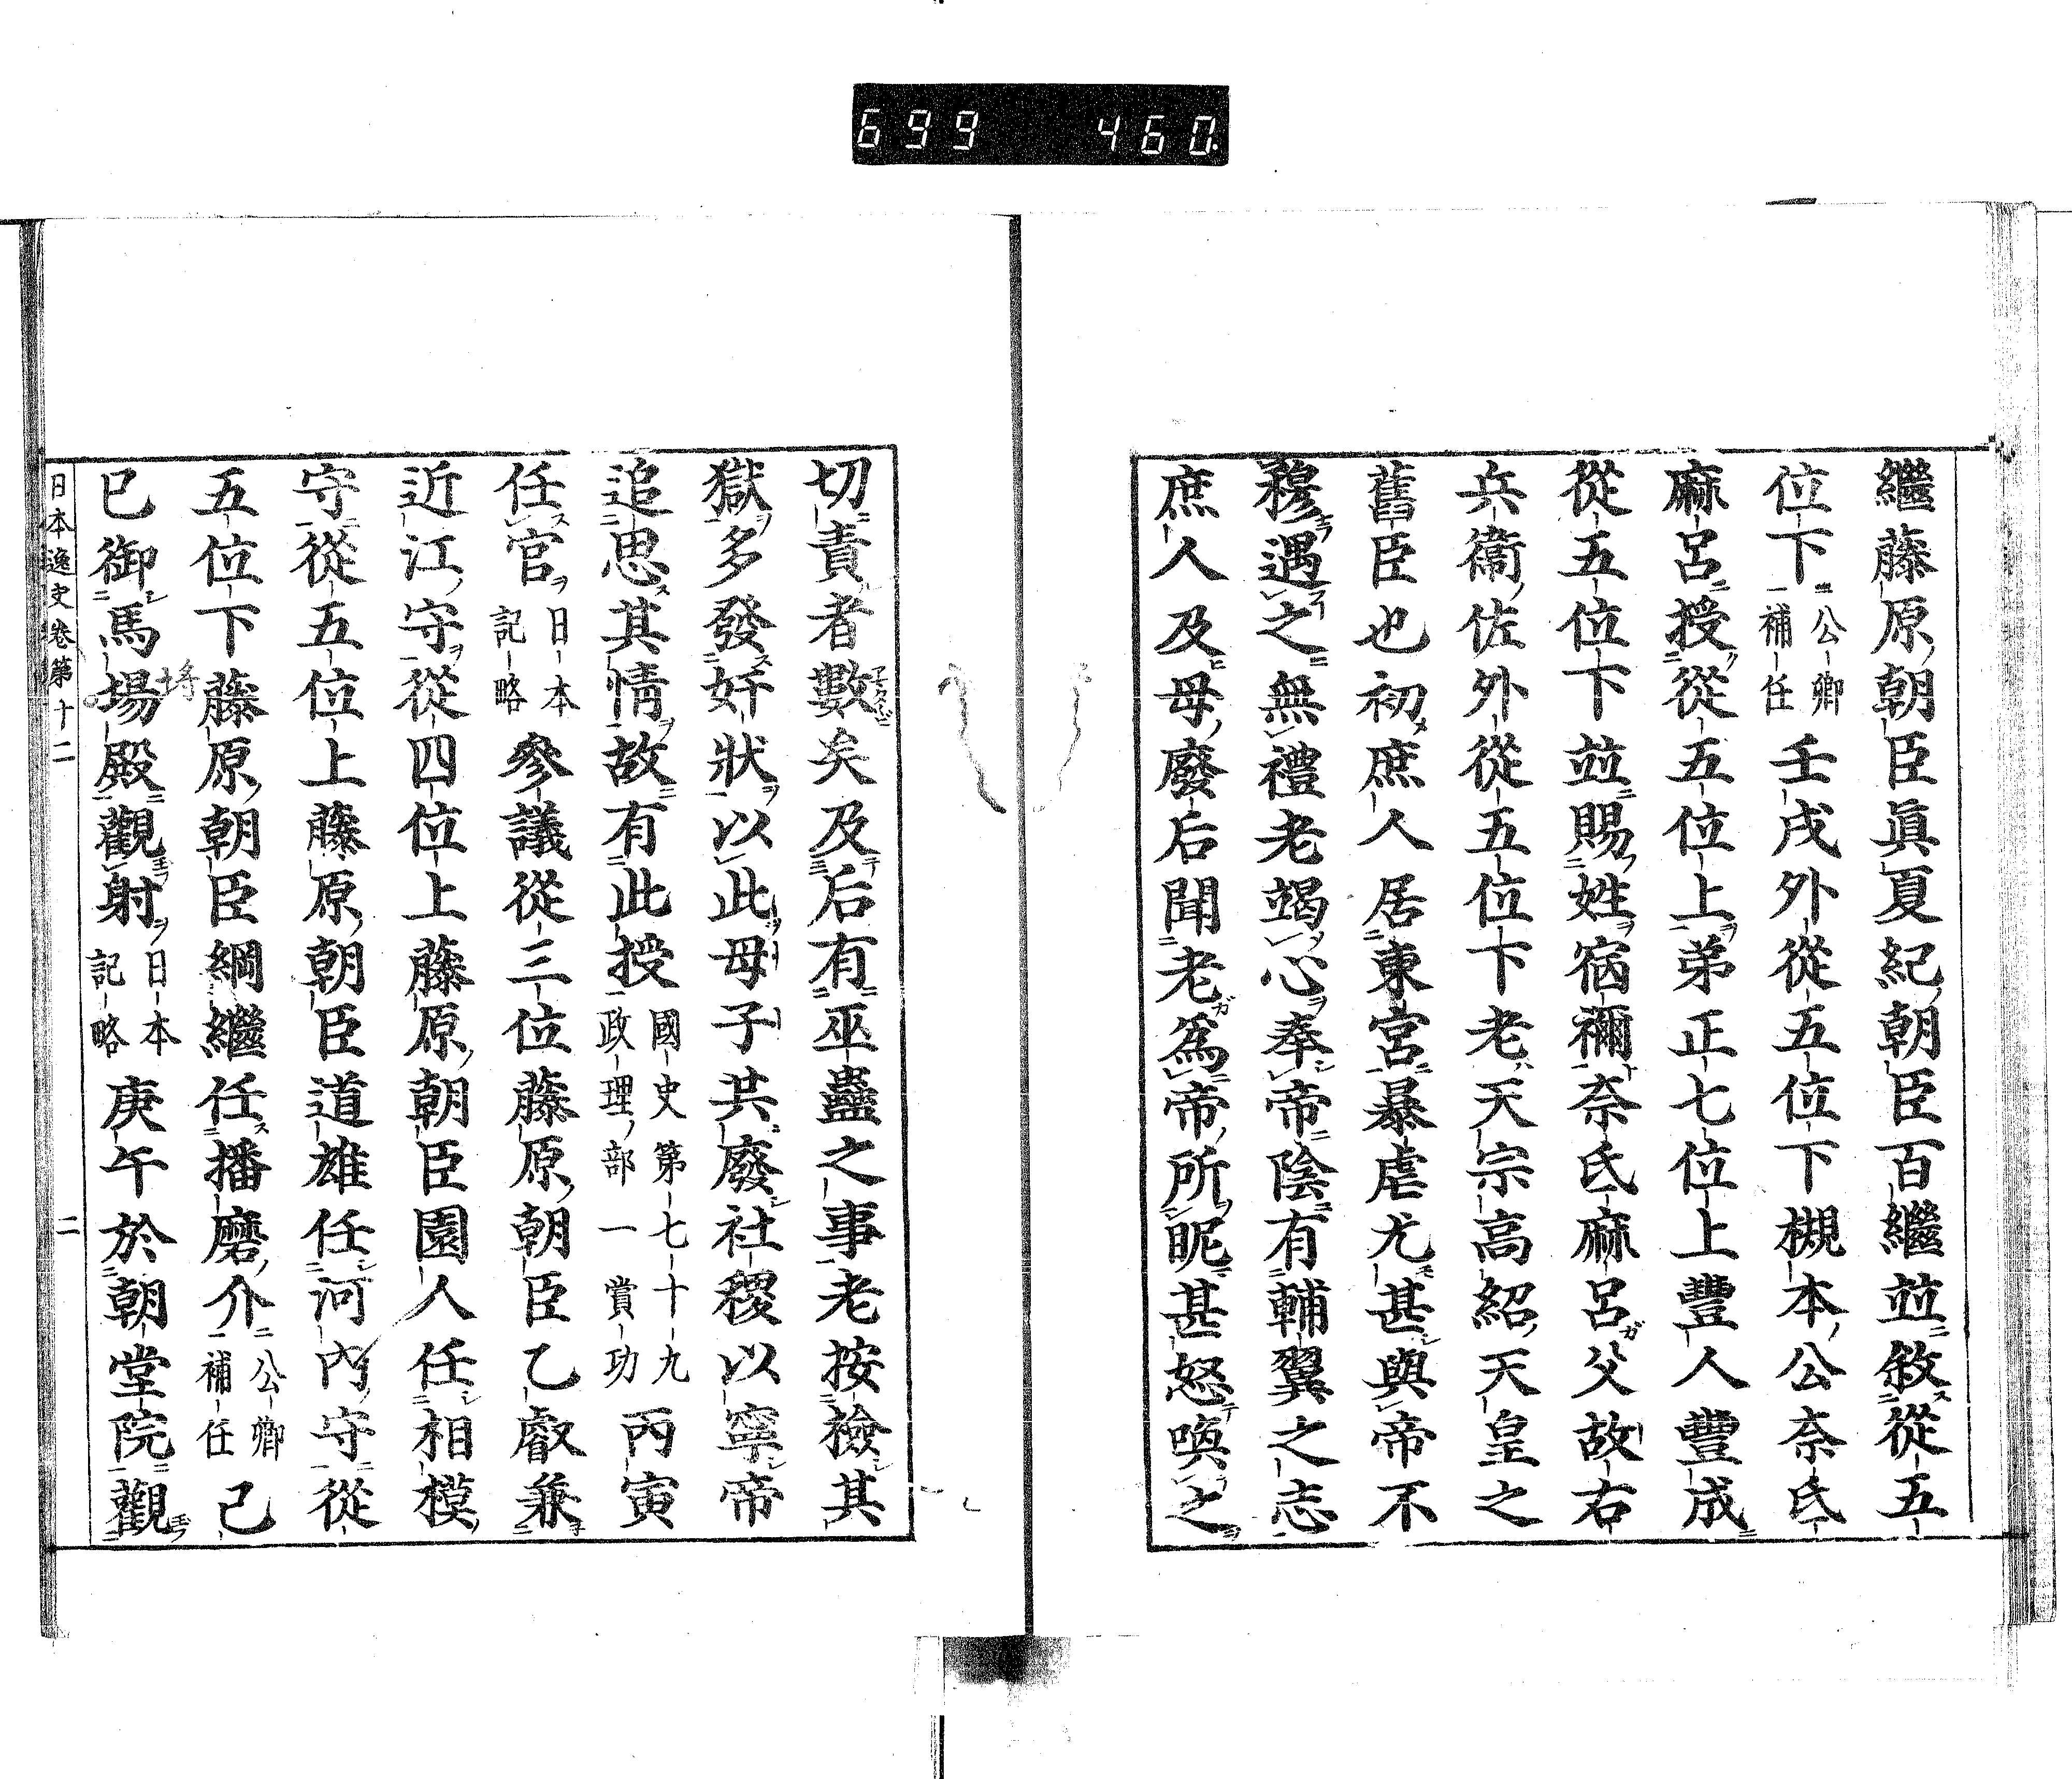 699 460
繼藤原朝臣眞夏紀朝臣百繼竝敘從五
位下公卿補任壬戌外從五位下槻本公奈氏
麻呂授從五位上弟正七位上豐人豐成
從五位下竝賜姓宿禰奈氏麻呂父故右
兵衞佐外從五位下老天宗高紹天皇之
舊臣也初庶人居東宮暴虐尤甚與帝不
穆遇之無禮老竭心奉帝陰有輔翼之志
庶人及母廢后聞老爲帝所昵甚怒喚之
切責者數矣及后有巫蠱之事老按檢其
獄多發奸狀以此母子共廢社稷以寧帝
追思其情故有此授國史第七十九政理部一賞功丙寅
任官日本記略參議從三位藤原朝臣乙叡兼
近江守從四位上藤原朝臣園人任相模
守從五位上藤原朝臣道雄任河內守從
五位下藤原朝臣綱繼任播磨介公卿補任己
巳御馬場殿觀射日本記略庚午於朝堂院觀
埒
日本逸史卷第十二 二